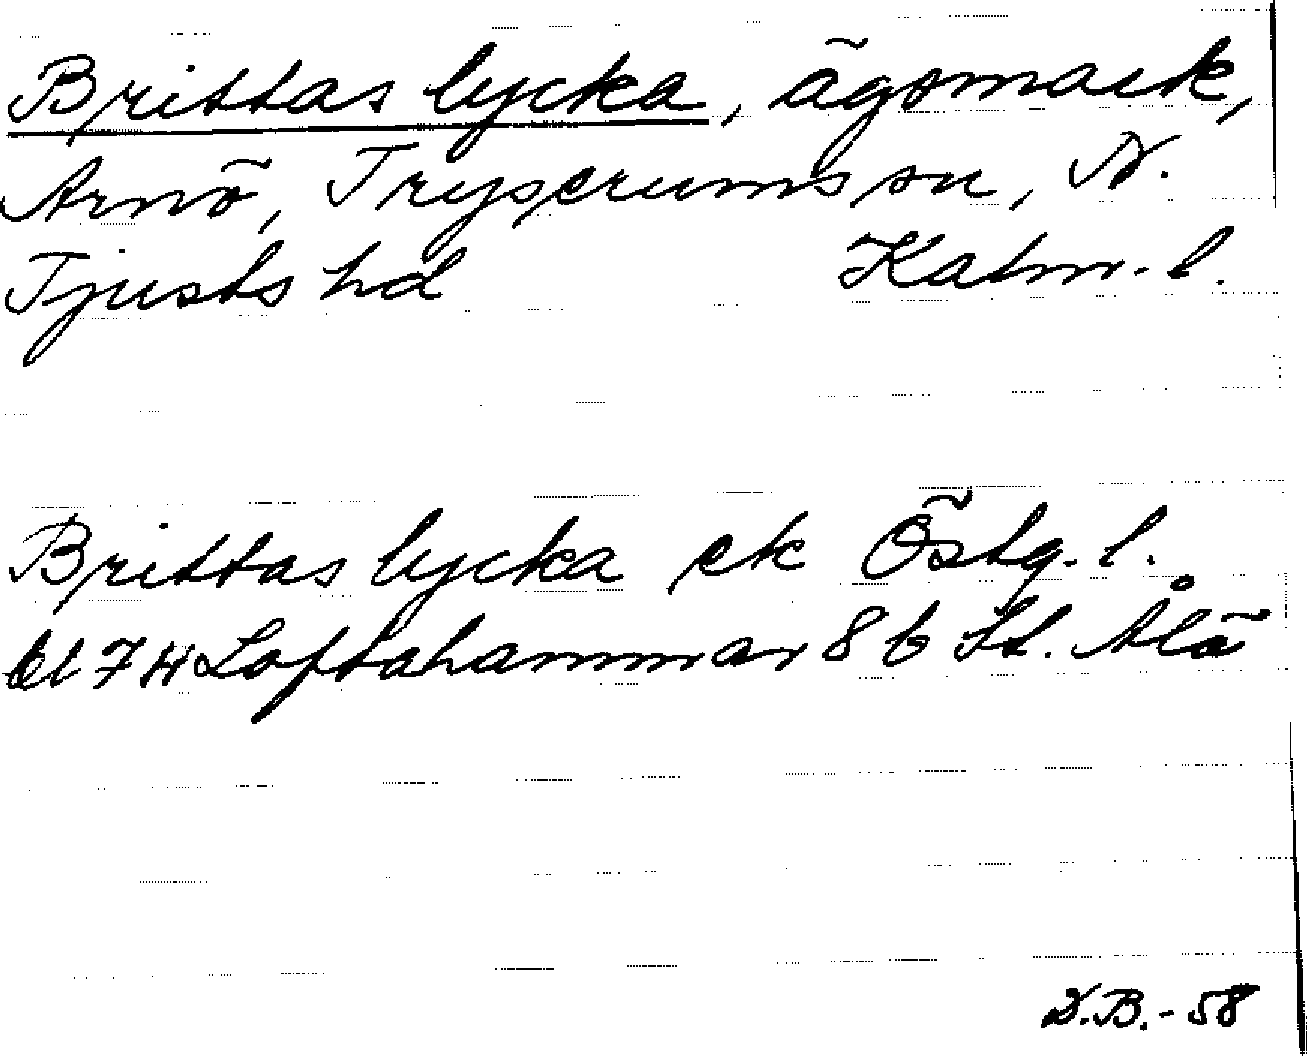 Brittas lycka, ägomark,
Arnö, Tryserums sn, N.
Tjusts hd Kalm. l.
Brittas lycka ek Östg. l.
bl 7 H Loftahammar 8 b St. Ålö
D.B. - 58